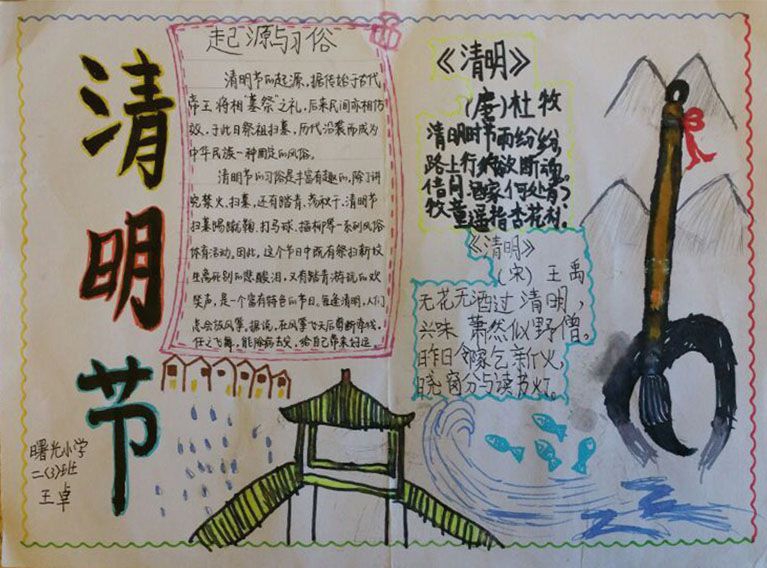 清
明
节
曙光小学
二(3)班
王卓
起源与习俗
清明节的起源,据传始于古代
帝王将相“墓祭”之礼,后来民间亦相仿
效,于此日祭祖扫墓,历代沿袭而成为
中华民族一种固定的风俗。
清明节的习俗是丰富有趣的,除了讲
究禁火、扫墓,还有踏青、荡秋千、清明节
扫墓蹴鞠、打马球、插柳等一系列风俗
体育活动。因此,这个节日中既有祭扫新坟
生离死别的悲酸泪,又有踏青游玩的欢
笑声,是一个富有特色的节日。每逢清明,人们
总会放风筝。据说,在风筝飞天后剪断牵线,
任之飞舞,能除病去灾,给自己带来好运。
《清明》
(唐)杜牧
清明时节雨纷纷,
路上行人欲断魂。
借问酒家何处有?
牧童遥指杏花村。
《清明》
(宋)王禹
无花无酒过清明,
兴味萧然似野僧。
昨日邻家乞新火,
晓窗分与读书灯。